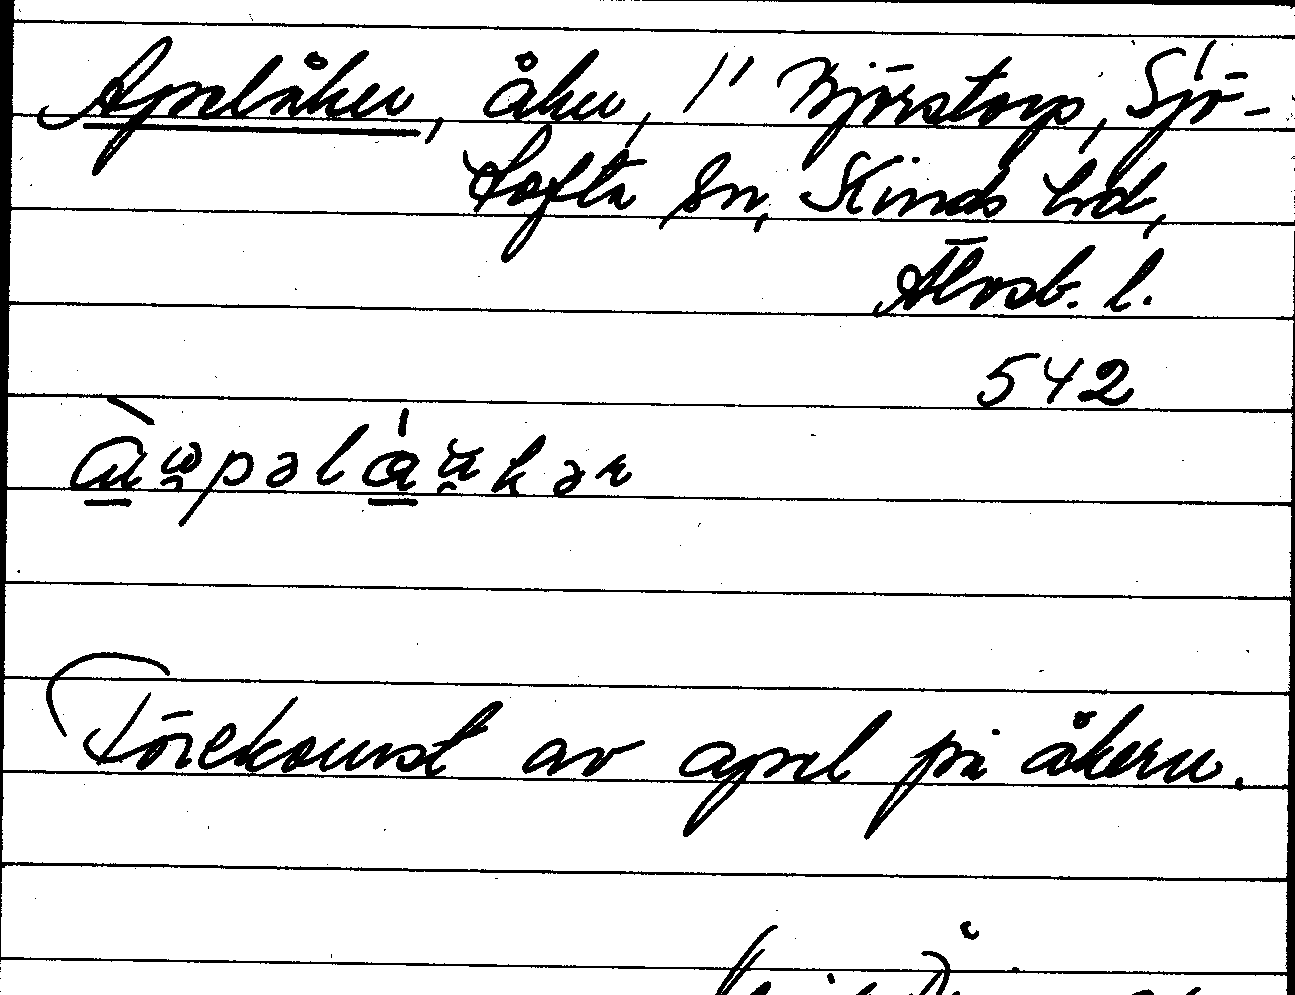 Apelåker, åker, 1'' Björstorp, Sjö-
tofta sn, Kinds hd,
Älvsb. l.
542
Förekomst av apel på åkern.